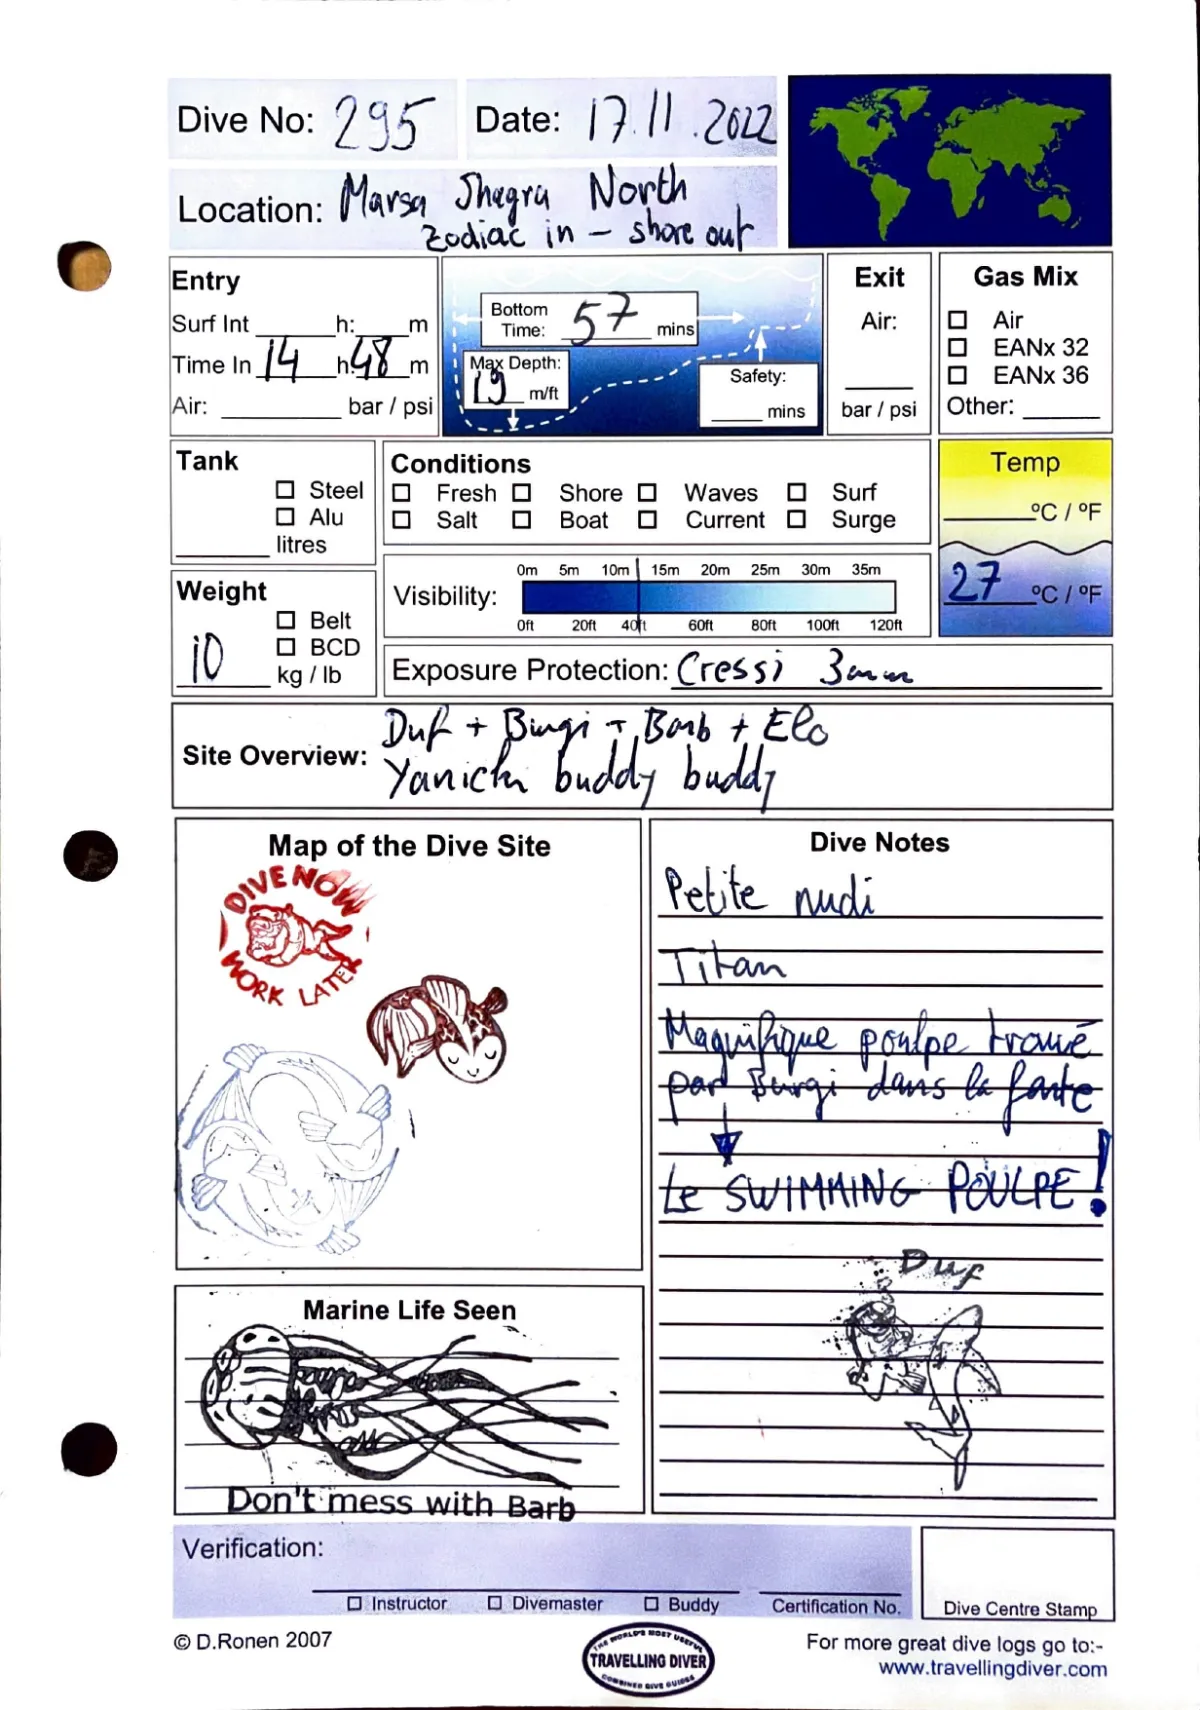 Dive No: 295
Date: 17.11.2022
Location: Marsa Shagra North
Zodiac in - shore out
Entry
Surf Int ______ h: ____ m
Time In 14 h: 48 m
Air: ________ bar / psi
Bottom Time: 57 mins
Max Depth: 19 m/ft
Safety: ____ mins
Exit
Air:
______
bar / psi
Gas Mix
☐ Air
☐ EANx 32
☐ EANx 36
Other: ______
Tank
☐ Steel
☐ Alu
______ litres
Conditions
☐ Fresh ☐ Shore ☐ Waves ☐ Surf
☐ Salt ☐ Boat ☐ Current ☐ Surge
Temp
______ ºC / ºF
27 ºC / ºF
Weight
☐ Belt
☐ BCD
10 kg / lb
0m 5m 10m 15m 20m 25m 30m 35m
Visibility:
0ft 20ft 40ft 60ft 80ft 100ft 120ft
Exposure Protection: Cressi 3mm
Site Overview: Duf + Burgi + Barb + Elo
Yanick buddy buddy
Map of the Dive Site
DIVE NOW
WORK LATER
Dive Notes
Petite nudi
Titan
Magnifique poulpe trouvé
par Burgi dans la faute
Le SWIMMING POULPE!
Duf
Marine Life Seen
Don't mess with Barb
Verification:
☐ Instructor ☐ Divemaster ☐ Buddy Certification No.
Dive Centre Stamp
© D.Ronen 2007
THE WORLD'S MOST USEFUL
TRAVELLING DIVER
COMBINED DIVE GUIDES
For more great dive logs go to:-
www.travellingdiver.com